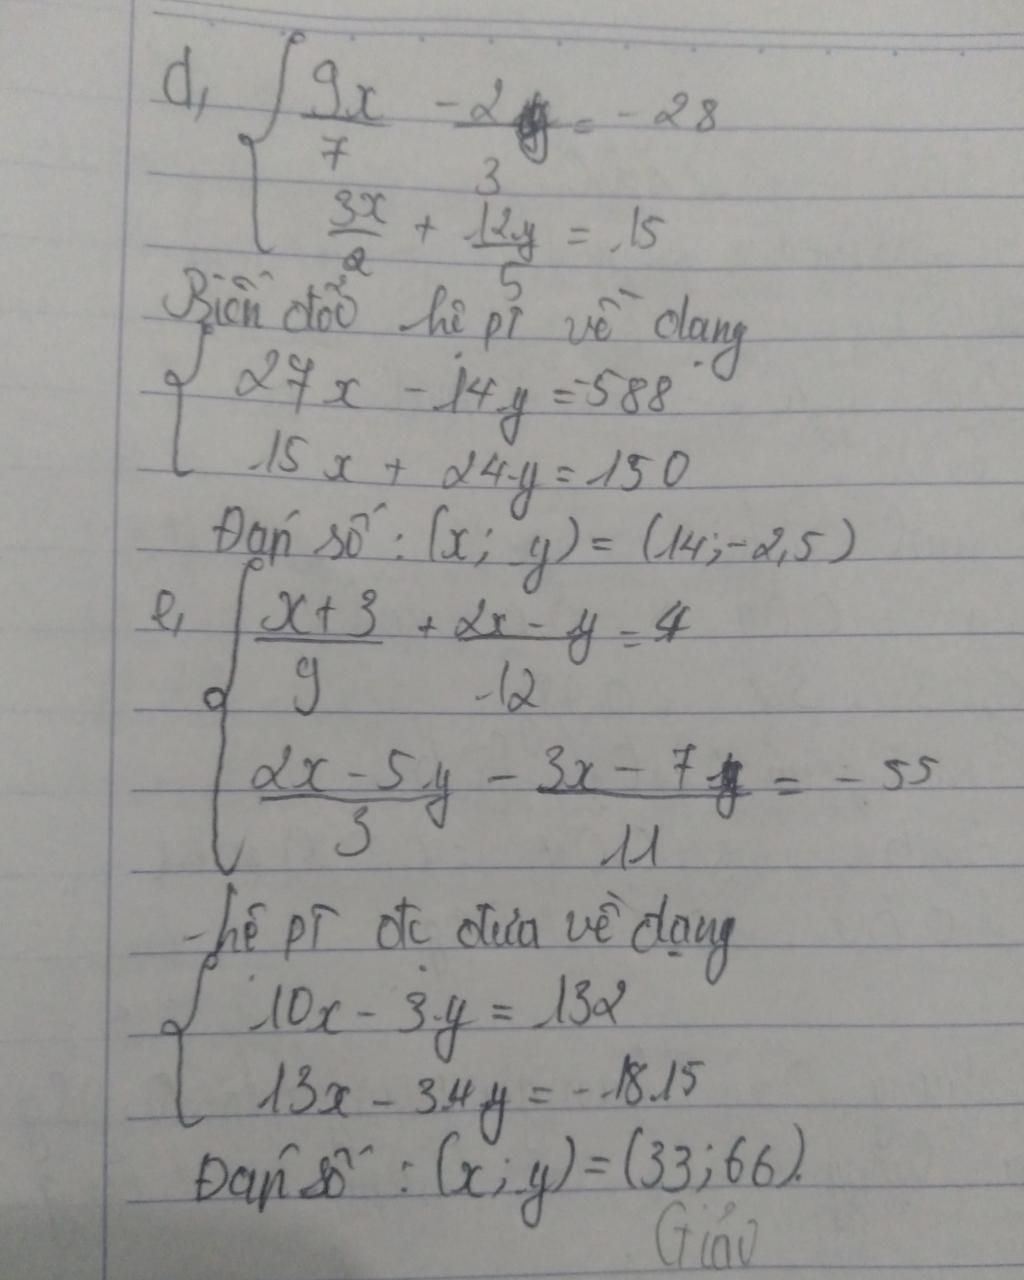 d, { 9x/7 - 2y/3 = -28
3x/2 + 12y/5 = 15
Biến đổi hệ pt về dạng
{ 27x - 14y = -588
15x + 24y = 150
Đáp số : (x; y) = (14; -2,5)
e, { x+3/9 + 2x - y/12 = 4
2x - 5y/3 - 3x - 7y/11 = -55
- hệ pt đc đưa về dạng
{ 10x - 3y = 132
13x - 34y = -1815
Đáp số : (x; y) = (33; 66).
Giáo